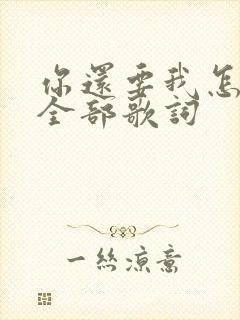 你還要我怎
全部歌詞
一絲涼意